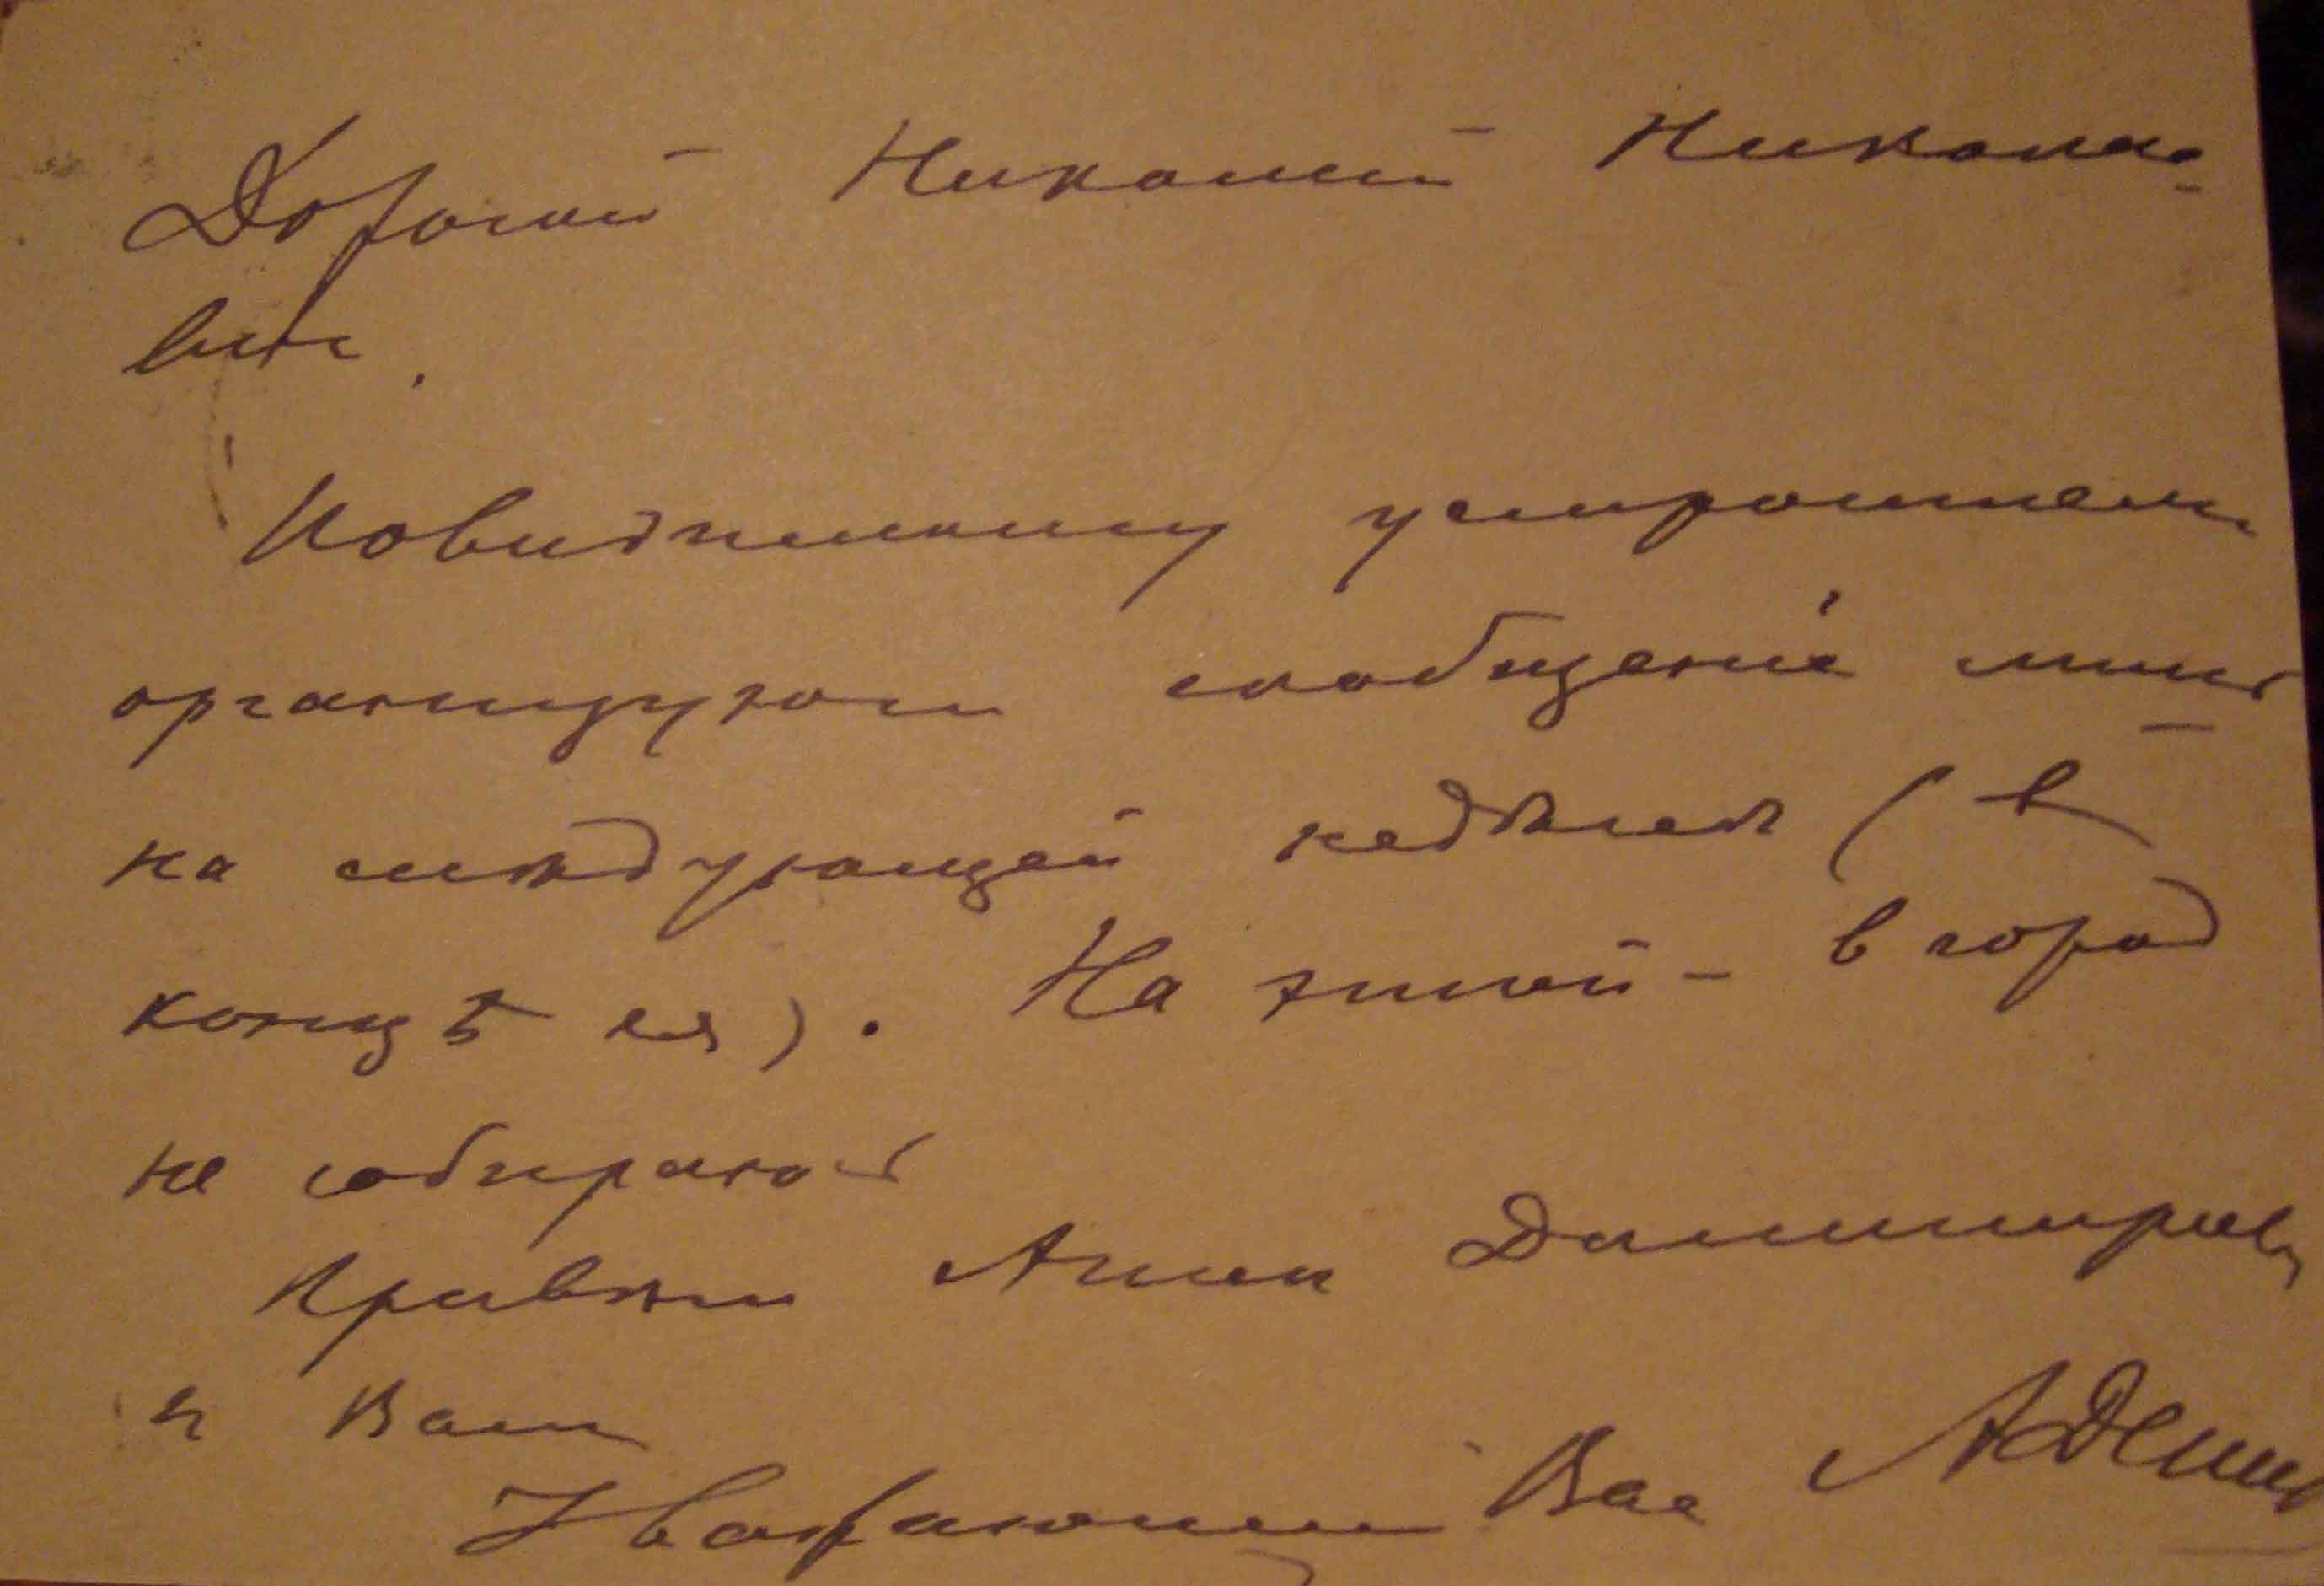 Дорогой Николай Николае-
вич.
Повидимому устроители
организуют сообщеніе мое
на слѣдующей недѣлѣ (в
концѣ ея). На этой - в город
не собираюсь
Привѣт Анне Димитриев
и Вам
Уважающий Вас А Дени